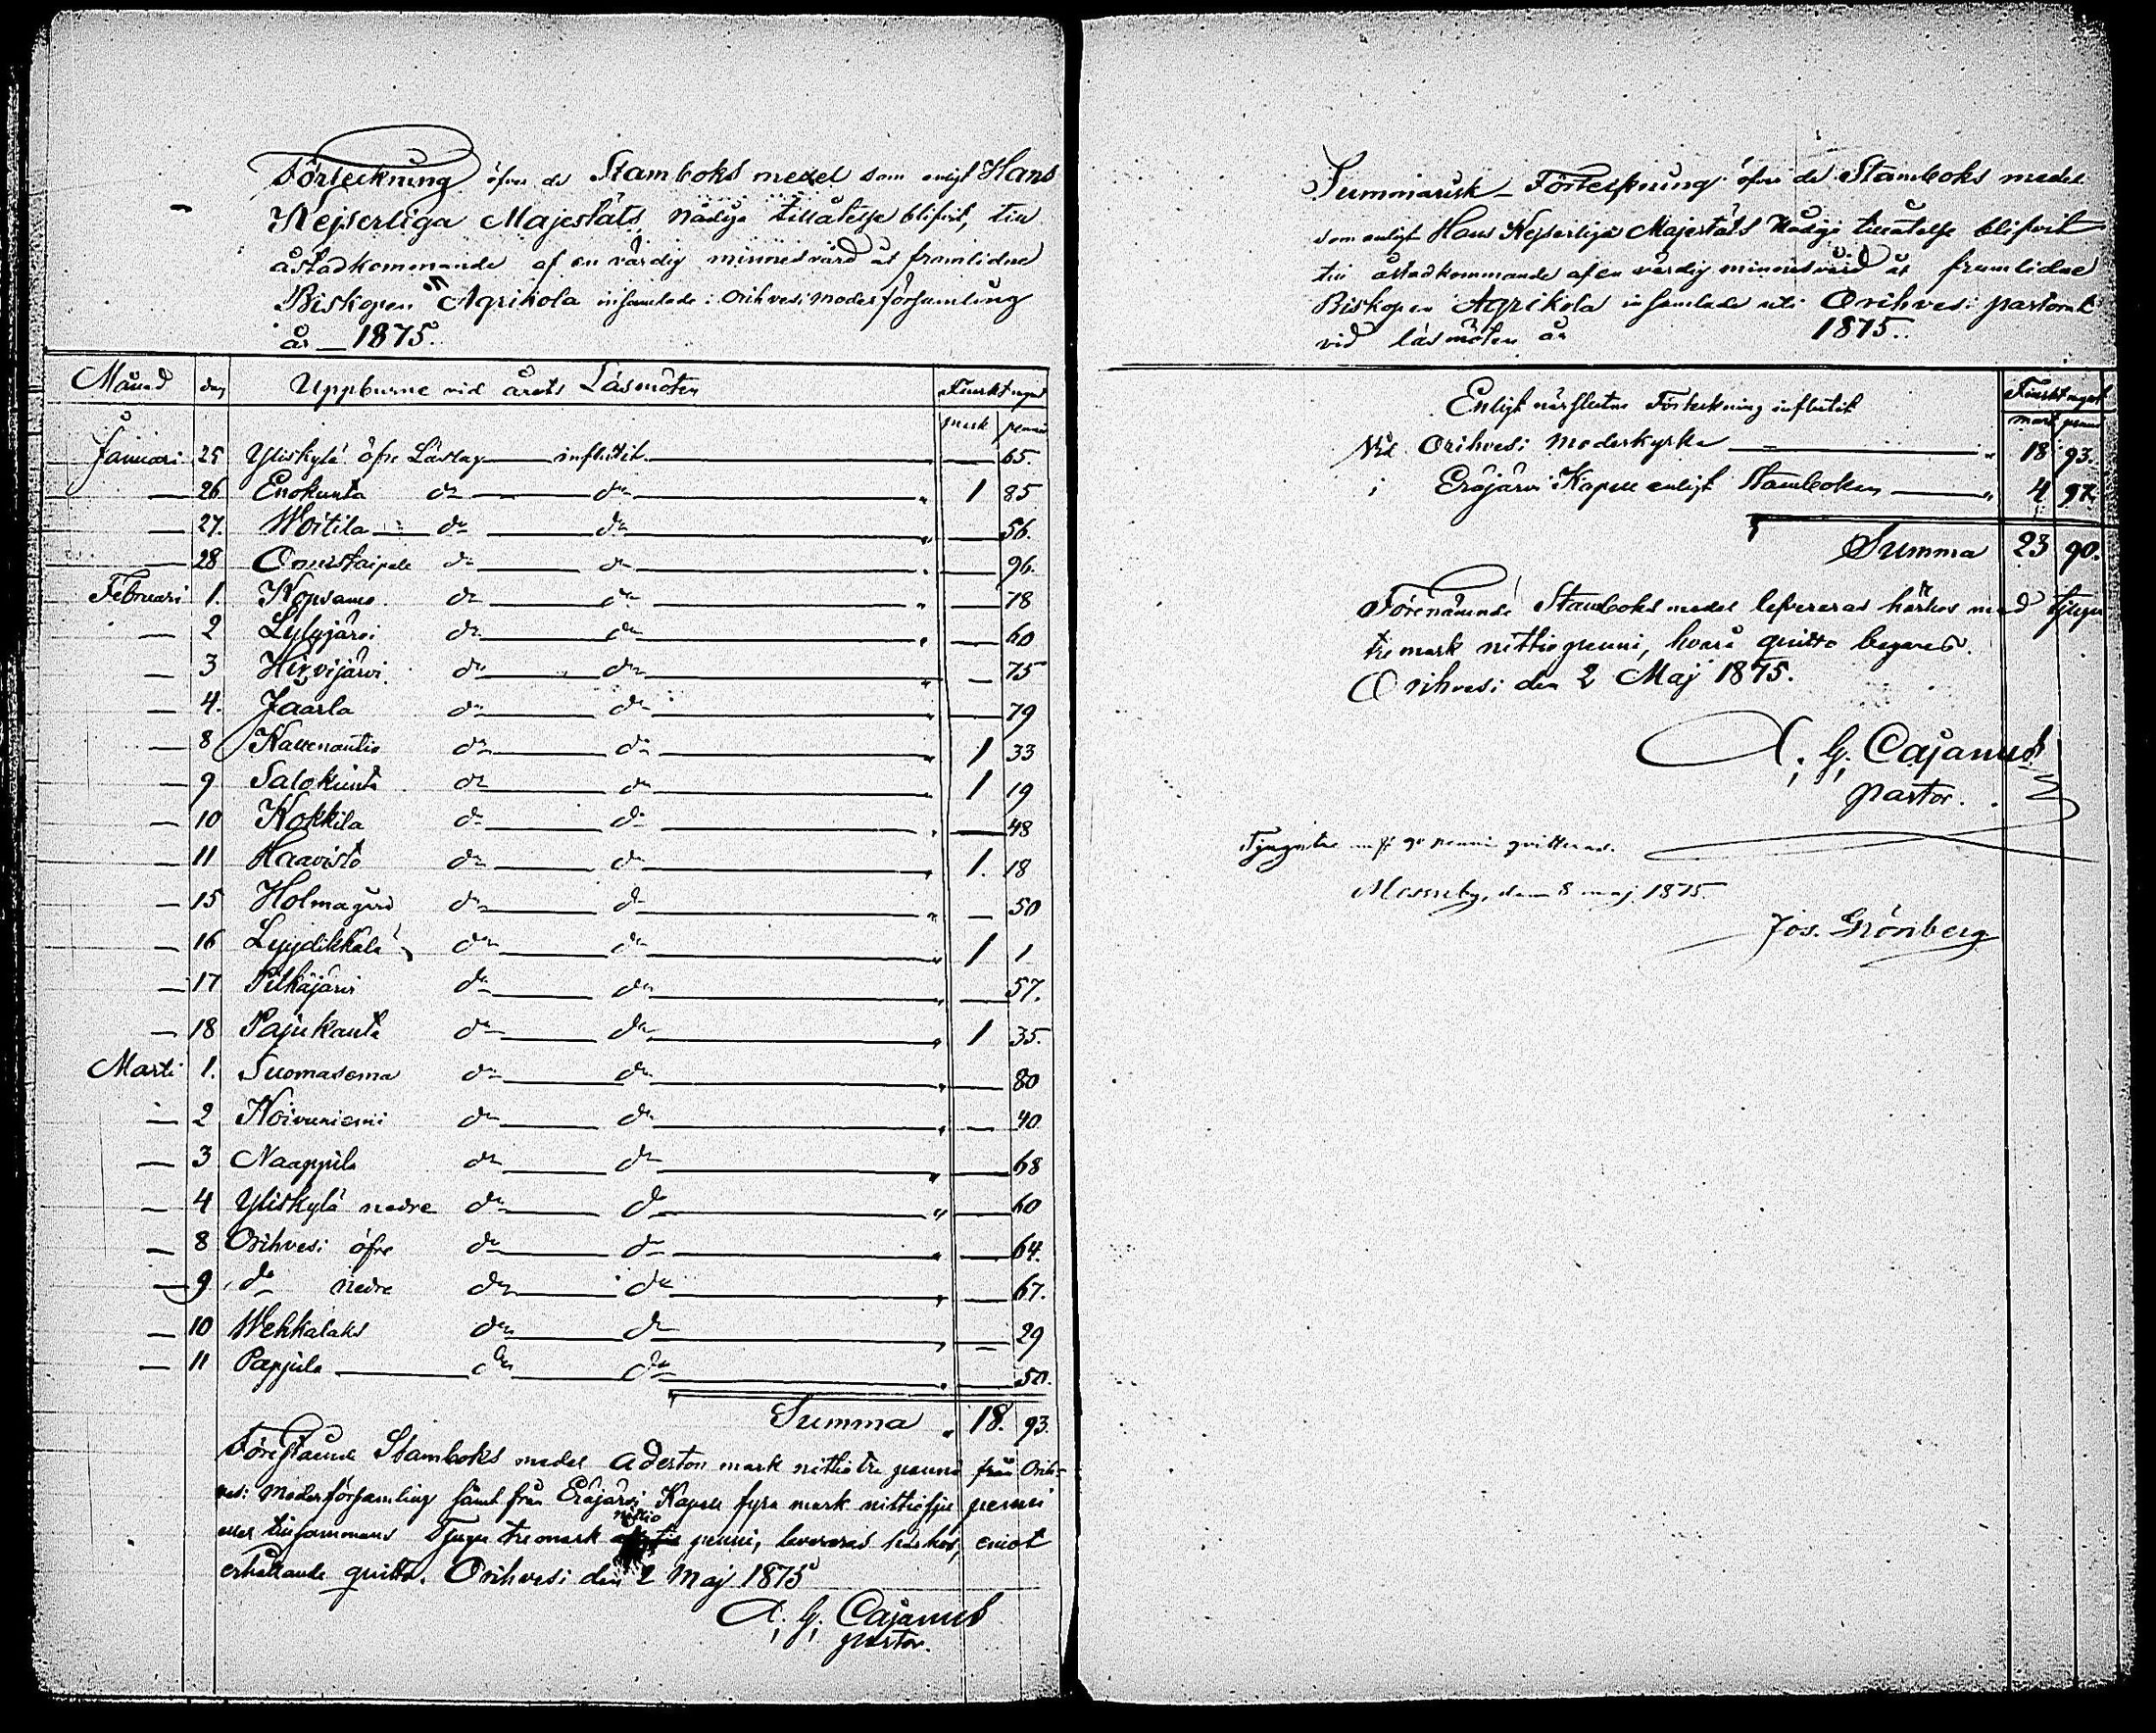 Förteckning öfver de Stamboks medel som enligt Hans
Kejserliga Majestäts Nådiga tillåtelse blifvit, till
åstadkommande af en värdig minnesvård åt framlidne
Biskopen M Agrikola insamlade i Orihvesi Moderförsamling
år 1875.
Månad dag Uppburne vid årets Läsmöten Finskt mynt
mark penni
Januari 25 Yliskylä öfre Läslag influtit " — 65.
— 26 Enokunta do do " 1 85
— 27. Woitila do do " — 56.
— 28 Onnistaipale do do " — 96.
Februari 1. Kopsamo do do " — 78
— 2 Lylyjärvi do do " — 60
— 3 Hirvijärvi do do " — 75
— 4. Jaarla do do " — 79
— 8 Kallenautio do do " 1 33
— 9 Salokunta do do " 1 19
— 10 Kokkila do do " — 48
— 11 Haavisto do do " 1. 18
— 15 Holmagård do do " — 50
— 16 Lyydikkälä do do " 1 1
— 17 Pitkäjärvi do do " — 57.
— 18 Pajukanta do do " 1 35.
Marti 1. Suomasema do do " — 80
— 2 Koivuniemi do do " — 40
— 3 Naappila do do " — 68
— 4 Yliskylä nedre do do " — 60
— 8 Orihvesi öfre do do " — 64.
— 9. do nedre do do " — 67.
— 10 Wehkalaks do do " — 29
— 11 Pappila do do " — 50.
Summa " 18. 93.
Förestående Stamboks medel Aderton mark nittiotre penni från Orih-
vesi Moderförsamling samt från Eräjärvi Kapell fyra mark nittiosju penni
eller tillsammans Tjugu tre mark nittio penni, levereras härhos, emot
erhållande quitto. Orihvesi den 2 Maj 1875
A. G. Cajanus
pastor.
Summarisk Förteckning öfver de Stamboks medel
som enligt Hans Kejserliga Majestäts Nådiga tillåtelse blifvit
till åstadkommande af en värdig minnesvård åt framlidne
Biskopen Agrikola insamlade uti Orihvesi pastorat
vid läsmöten år 1875.
Enligt närslutne Förteckning influtit Finskt mynt
mark penni
Vid Orihvesi Moderkyrka " 18 93.
i Eräjärvi Kapell enligt Stamboken " 4 97.
Summa 23 90.
Förenämnde Stamboks medel lefvereras härhos med tjugu
tre mark nittio penni, hvarå quitto begäres.
Orihvesi den 2 Maj 1875.
A. G. Cajanus
pastor.
Tjugutre 90 penni qvitteras.
Messuby, den 8 maj 1875.
Jos. Grönberg